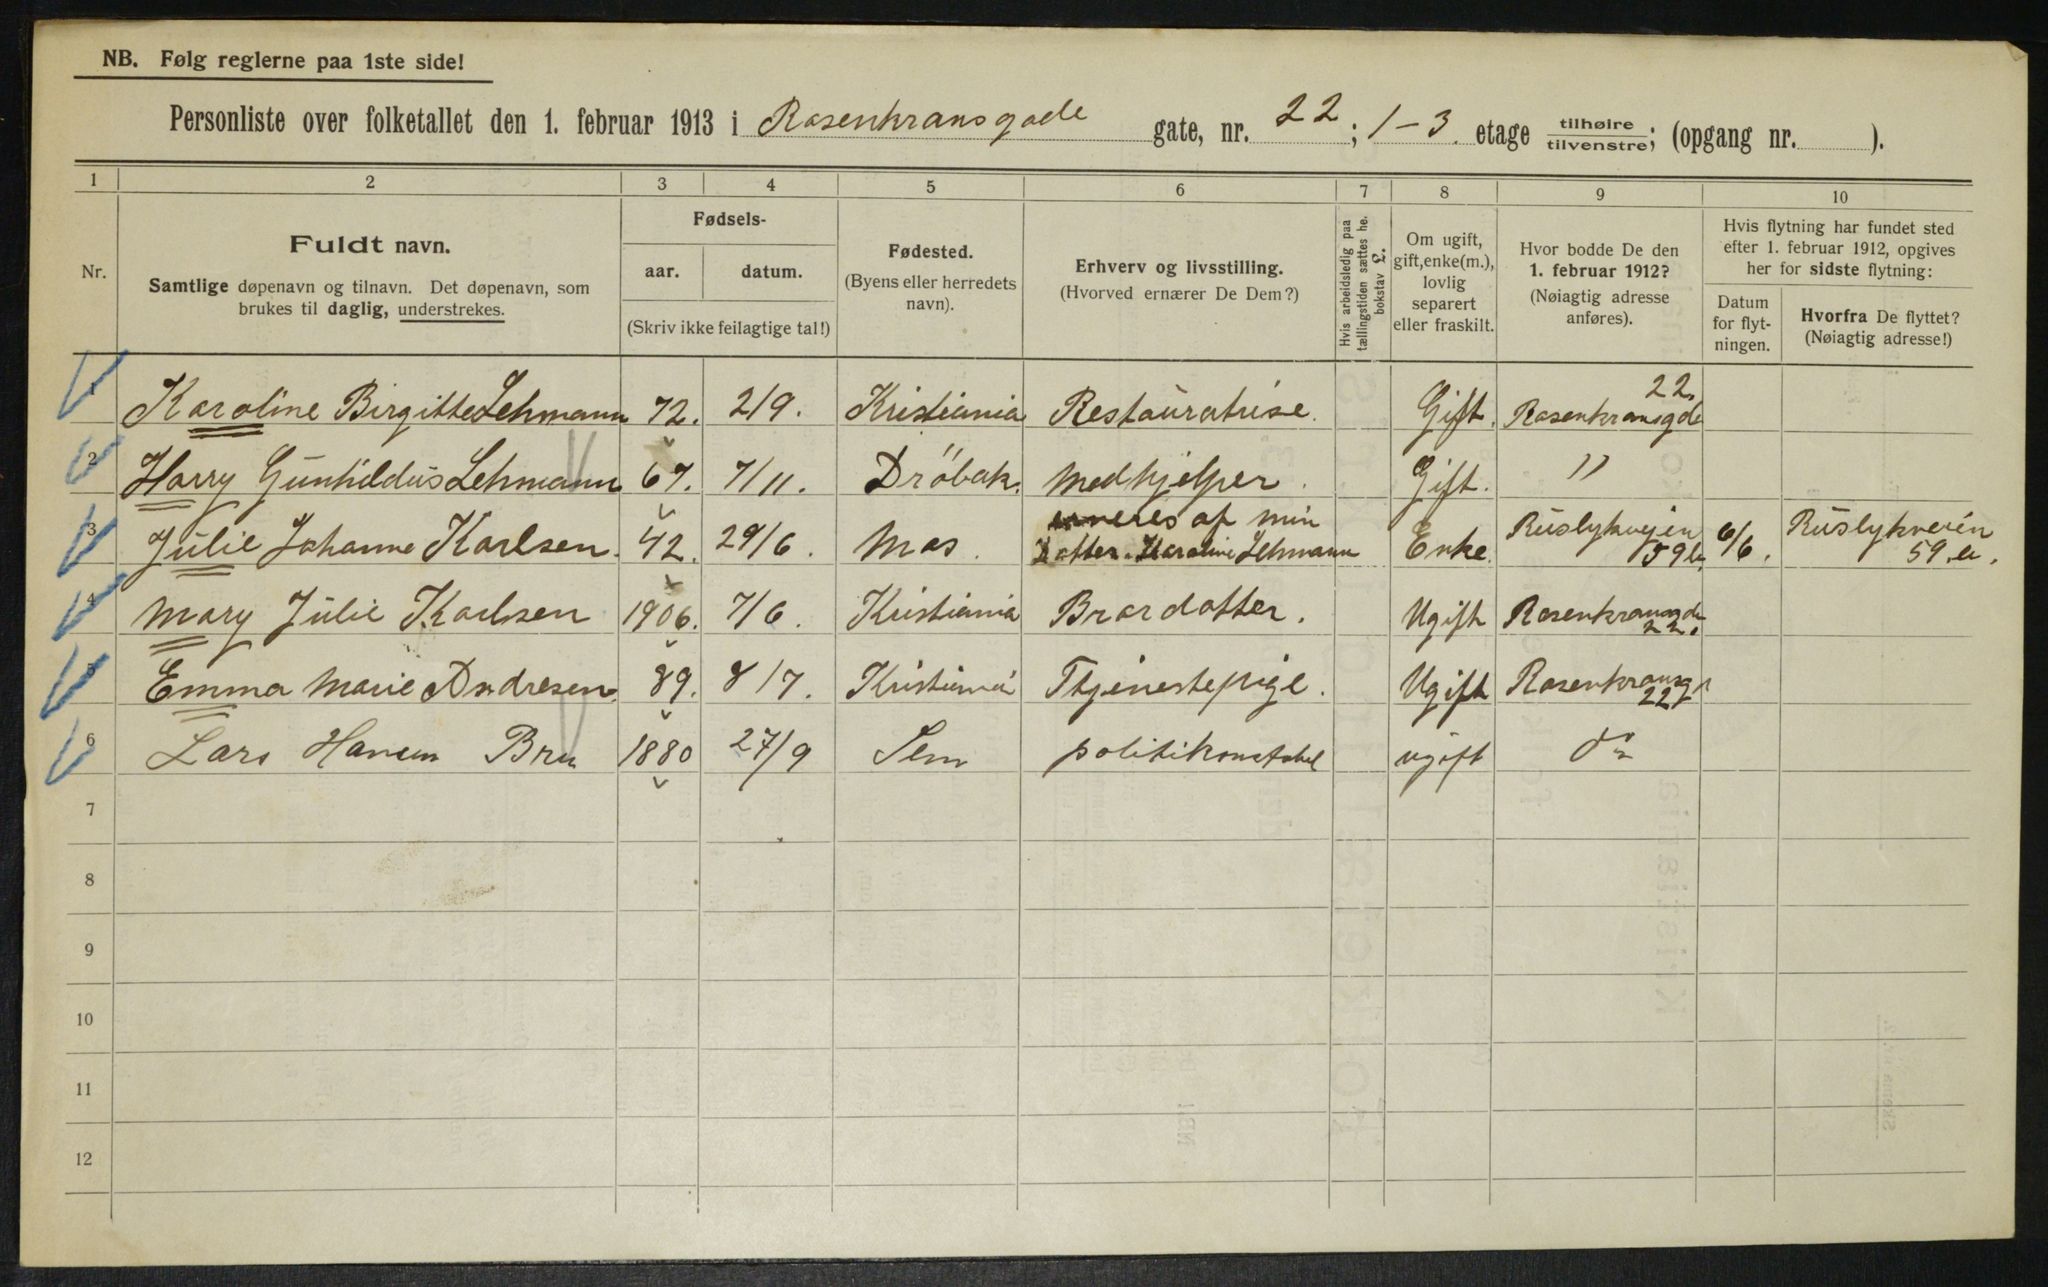 NB. Følg reglerne paa 1ste side!
Personliste over folketallet den 1. februar 1913 i Rosenkransgade gate, nr. 22; 1-3. etage tilhøire/tilvenstre; (opgang nr. ).
1 2 3 4 5 6 7 8 9 10
Nr.
Fuldt navn.
Samtlige døpenavn og tilnavn. Det døpenavn, som
brukes til daglig, understrekes.
Fødsels-
aar. datum.
(Skriv ikke feilagtige tal!)
Fødested.
(Byens eller herredets
navn).
Erhverv og livsstilling.
(Hvorved ernærer De Dem?)
Hvis arbeidsledig paa
tællingstiden sættes he.
bokstav L.
Om ugift,
gift, enke(m.),
lovlig
separert
eller fraskilt.
Hvor bodde De den
1. februar 1912?
(Nøiagtig adresse
anføres).
Hvis flytning har fundet sted
efter 1. februar 1912, opgives
her for sidste flytning:
Datum
for flyt-
ningen.
Hvorfra De flyttet?
(Nøiagtig adresse!)
1 Karoline Birgitte Lehmann 72. 2/9. Kristiania Restauratrise. Gift. Rosenkransgde 22.
2 Harry Gunhildus Lehmann 67. 7/11. Drøbak. Medhjelper. Gift. "
3 Julie Johanne Karlsen. 42. 29/6. Mos. erneres af min
Dotter. Karoline Lehmann Enke. Ruslykvejen 59b. 6/6. Ruslykveien 59.
4 Mary Julie Karlsen 1906. 7/6. Kristiania Brordotter. Ugift Rosenkransgde 22.
5 Emma Marie Andresen. 89. 8/7. Kristiania Tjenestepige. Ugift Rosenkransg 22
6 Lars Hansen Bru 1880 27/9 Sem politikonstabel ugift do
7
8
9
10
11
12